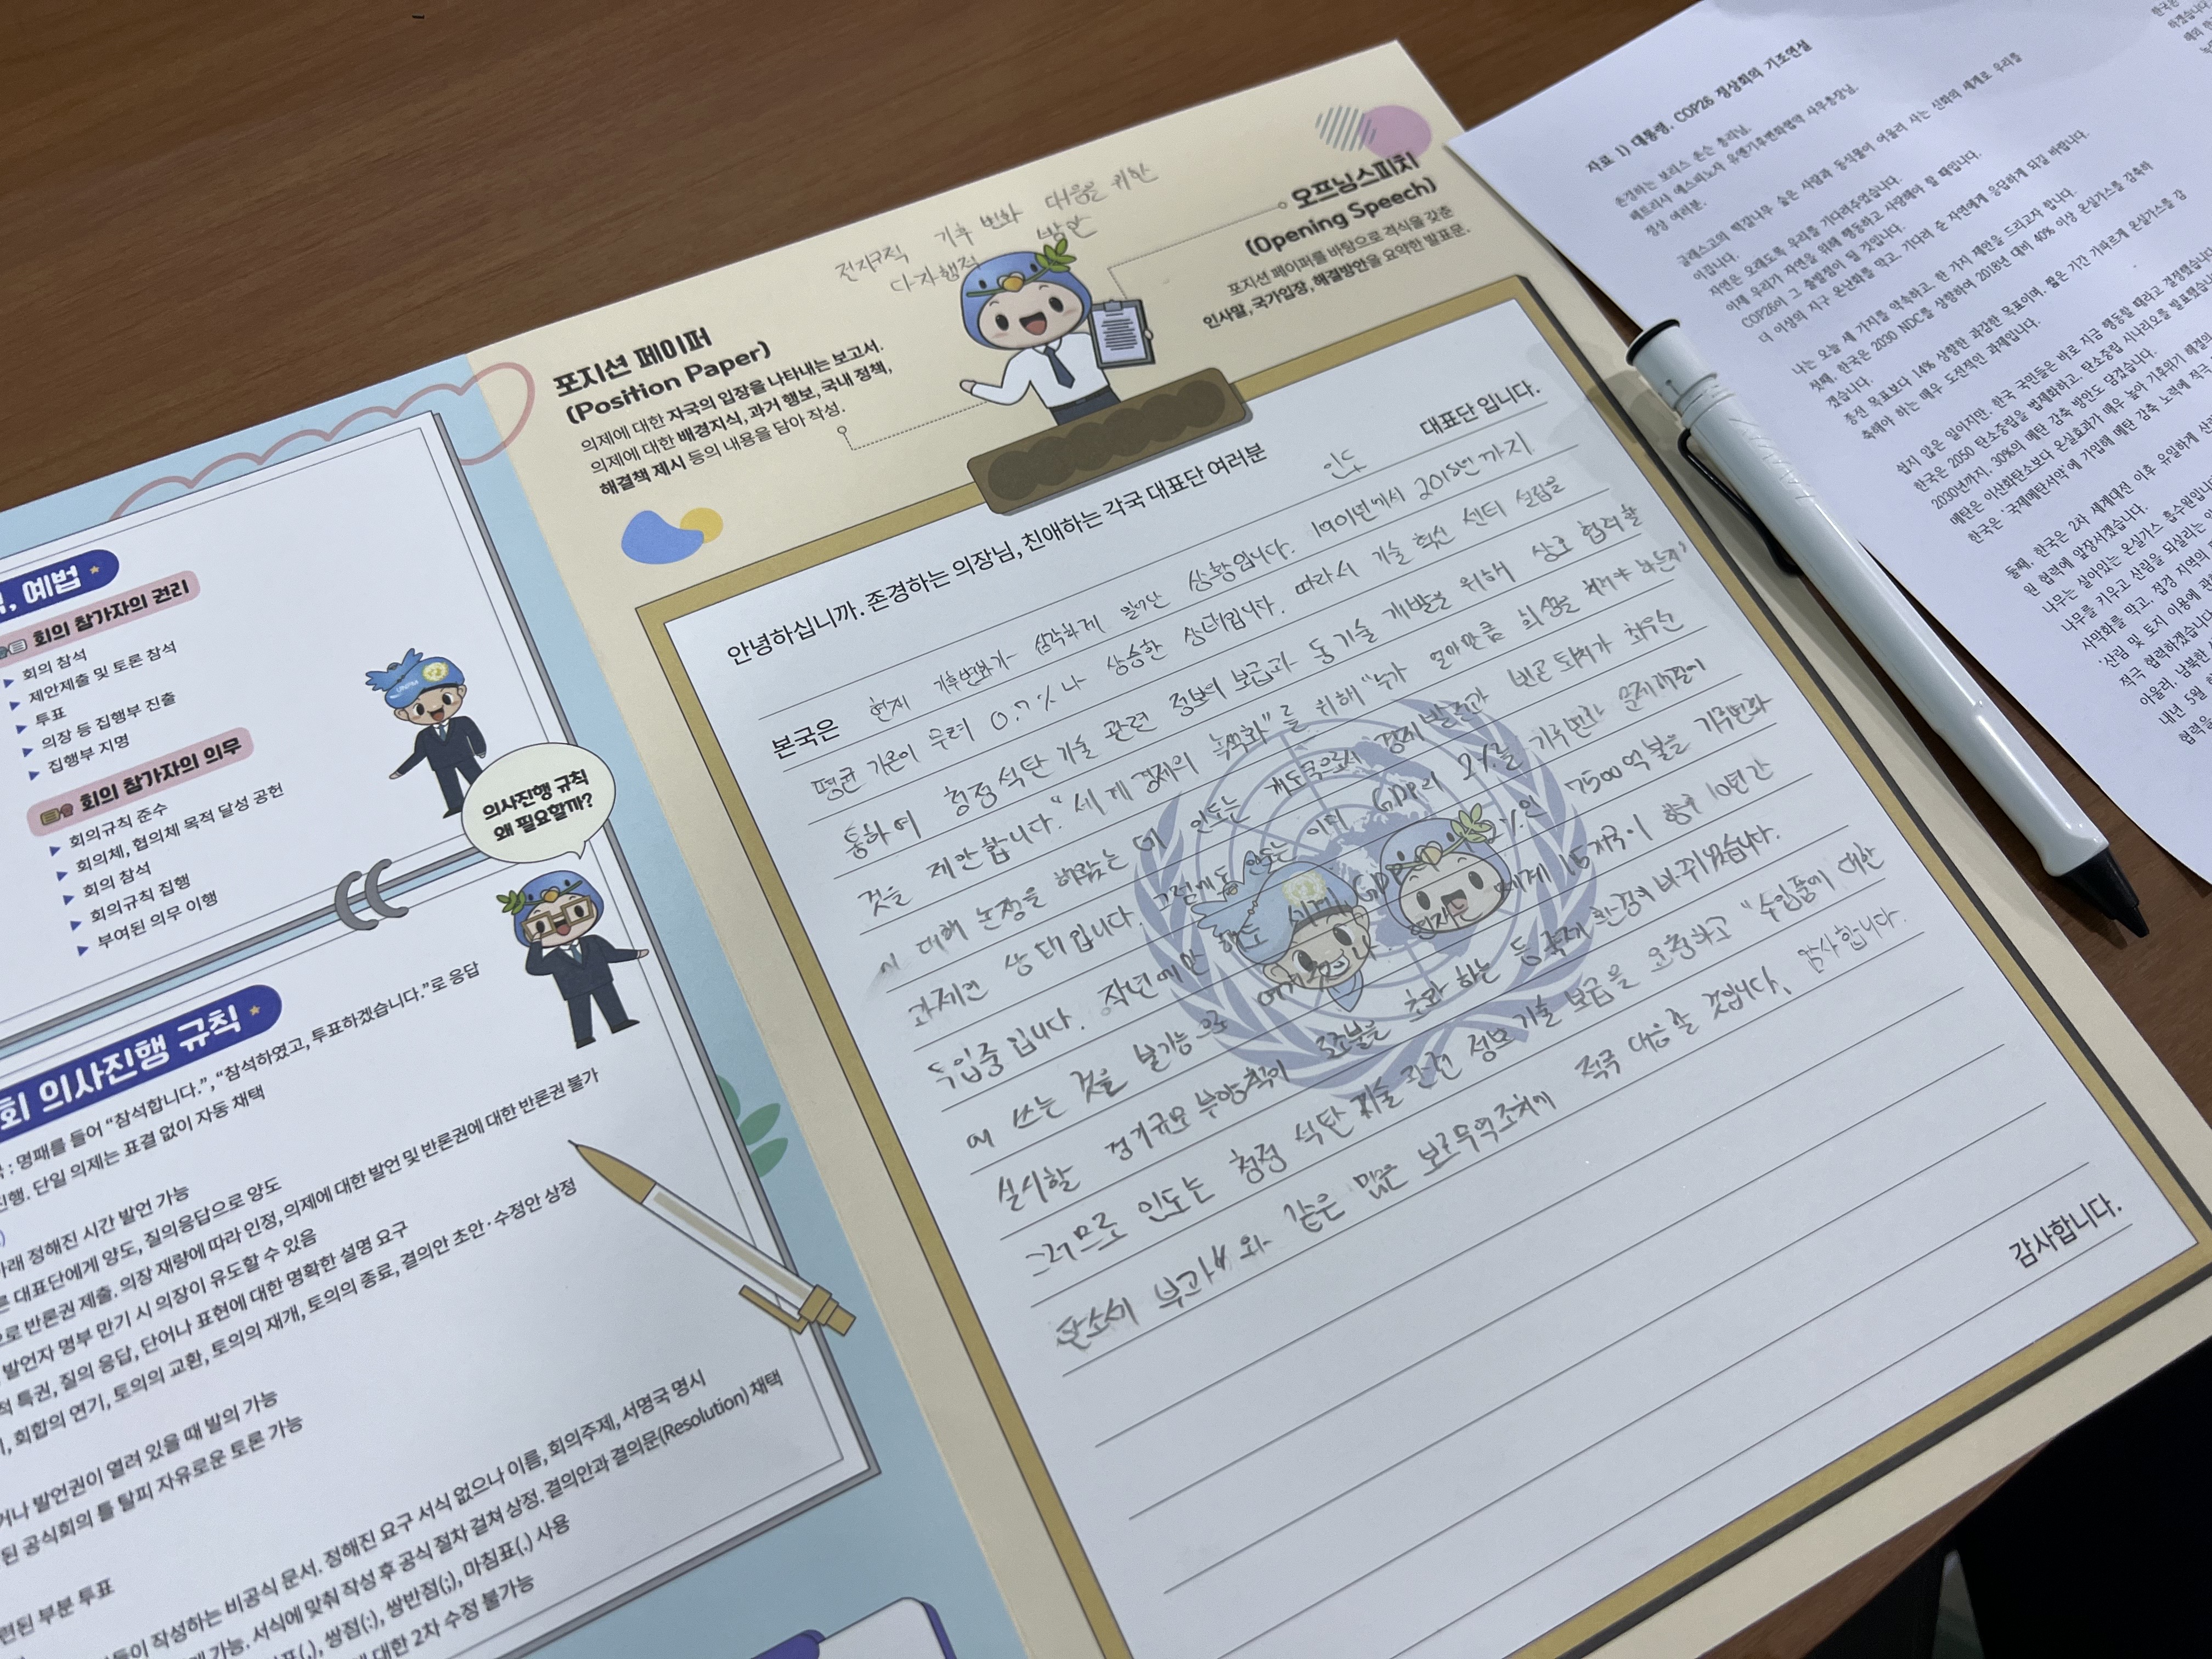 , 예법
회의 참가자의 권리
회의 참석
제안제출 및 토론 참석
투표
의장 등 집행부 진출
집행부 지명
회의 참가자의 의무
회의규칙 준수
회의체, 협의체 목적 달성 공헌
회의 참석
회의규칙 집행
부여된 의무 이행
UNPM
의사진행 규칙
왜 필요할까?
회 의사진행 규칙
: 명패를 들어 “참석합니다.”, “참석하였고, 투표하겠습니다.”로 응답
진행. 단일 의제는 표결 없이 자동 채택
아래 정해진 시간 발언 가능
른 대표단에게 양도, 질의응답으로 양도
으로 반론권 제출. 의장 재량에 따라 인정, 의제에 대한 발언 및 반론권에 대한 반론권 불가
발언자 명부 만기 시 의장이 유도할 수 있음
적 특권, 질의 응답, 단어나 표현에 대한 명확한 설명 요구
, 회합의 연기, 토의의 교환, 토의의 재개, 토의의 종료, 결의안 초안·수정안 상정
거나 발언권이 열려 있을 때 발의 가능
된 공식회의 틀 탈피 자유로운 토론 가능
련된 부분 투표
들이 작성하는 비공식 문서. 정해진 요구 서식 없으나 이름, 회의주제, 서명국 명시
가능. 서식에 맞춰 작성 후 공식 절차 걸쳐 상정. 결의안과 결의문(Resolution) 채택
표(,), 쌍점(:), 쌍반점(;), 마침표(.) 사용
에 대한 2차 수정 불가능
전지구적 기후 변화 대응을 위한
다자행적 방안
포지션 페이퍼
(Position Paper)
의제에 대한 자국의 입장을 나타내는 보고서.
의제에 대한 배경지식, 과거 행보, 국내 정책,
해결책 제시 등의 내용을 담아 작성.
오프닝스피치
(Opening Speech)
포지션 페이퍼를 바탕으로 격식을 갖춘
인사말, 국가입장, 해결방안을 요약한 발표문.
안녕하십니까. 존경하는 의장님, 친애하는 각국 대표단 여러분 인도 대표단 입니다.
본국은 현재 기후변화가 심각하게 일어난 상황입니다. 1901년에서 2018년까지
평균 기온이 무려 0.7%나 상승한 상태입니다. 따라서 기술 혁신 센터 설립을
통하여 청정석탄 기술 관련 정보의 보급과 동기술 개발을 위해 상호 협력할
것을 제안합니다. “세계 경제의 녹색화”를 위해 “누가 얼마만큼 희생을 치러야 하는지”
에 대해 논쟁을 해왔는데 인도는 개도국으로서 경제 발전과 빈곤 퇴치가 최우선
과제인 상태입니다. 그럼에도 인도는 이미 GDP의 2%를 기후변화 문제 해결에
투입중입니다. 작년에만 해도 세계 GDP 1%인 7500억 불을 기후변화
에 쓰는 것을 불가능으로 여겼으나 이제는 세계 15개국이 향후 10년간
실시할 경기규모 부양책이 로조불을 초과 하는 등 국제 환경이 바뀌었습니다.
그러므로 인도는 청정 석탄 기술 관련 정보 기술 보급을 요청하고 “수입품에 대한
탄소세 부과”와 같은 많은 보호무역조치에 적극 대응할 것입니다. 감사합니다.
감사합니다.
자료 1) 대통령, COP26 정상회의 기조연설
존경하는 보리스 존슨 총리님,
패트리샤 에스피노사 유엔기후변화협약 사무총장님,
정상 여러분,
글래스고의 떡갈나무 숲은 사람과 동식물이 어울려 사는 신화의 세계로 우리를
이끕니다.
자연은 오래도록 우리를 기다려주었습니다.
이제 우리가 자연을 위해 행동하고 사랑해야 할 때입니다.
COP26이 그 출발점이 될 것입니다.
더 이상의 지구 온난화를 막고, 기다려 준 자연에게 응답하게 되길 바랍니다.
나는 오늘 세 가지를 약속하고, 한 가지 제안을 드리고자 합니다.
첫째, 한국은 2030 NDC를 상향하여 2018년 대비 40% 이상 온실가스를 감축하
겠습니다.
종전 목표보다 14% 상향한 과감한 목표이며, 짧은 기간 가파르게 온실가스를 감
축해야 하는 매우 도전적인 과제입니다.
쉽지 않은 일이지만, 한국 국민들은 바로 지금 행동할 때라고 결정했습니다
한국은 2050 탄소중립을 법제화하고, 탄소중립 시나리오를 발표했습니
2030년까지, 30%의 메탄 감축 방안도 담았습니다.
메탄은 이산화탄소보다 온실효과가 매우 높아 기후위기 해결의
한국은 ‘국제메탄서약’에 가입해 메탄 감축 노력에 적극
둘째, 한국은 2차 세계대전 이후 유일하게 산
원 협력에 앞장서겠습니다.
나무는 살아있는 온실가스 흡수원입니다
나무를 키우고 산림을 되살리는 일
사막화를 막고, 접경 지역의 평
‘산림 및 토지 이용에 관
적극 협력하겠습니다
아울러, 남북한 산
내년 5월
협력을